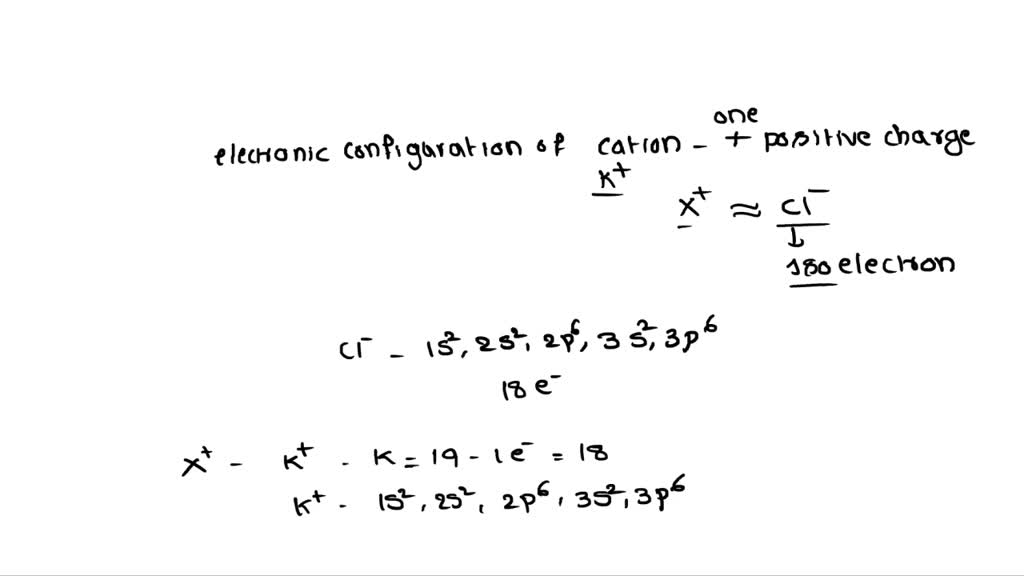 one
elecronic configuration of cation - + positive charge
K⁺
X⁺ ≈ Cl⁻
↓
180 electron
Cl⁻ - 1s², 2s², 2p⁶, 3s², 3p⁶
18 e⁻
X⁺ - K⁺ - K = 19 - 1e⁻ = 18
K⁺ - 1s², 2s², 2p⁶, 3s², 3p⁶